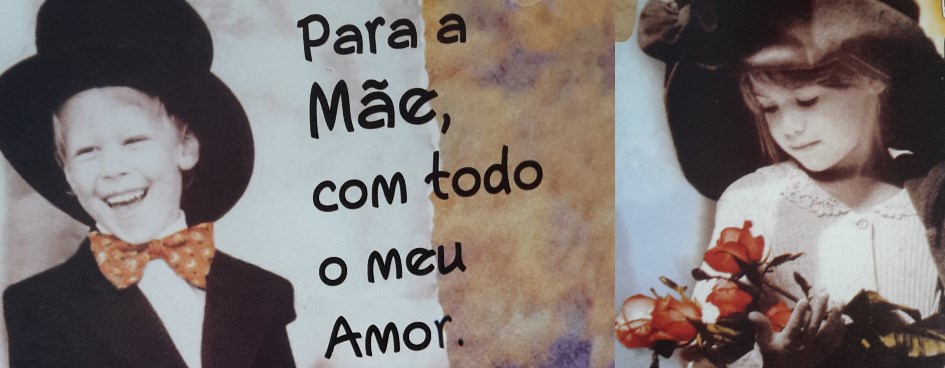 Para a
Mãe,
com todo
o meu
Amor.